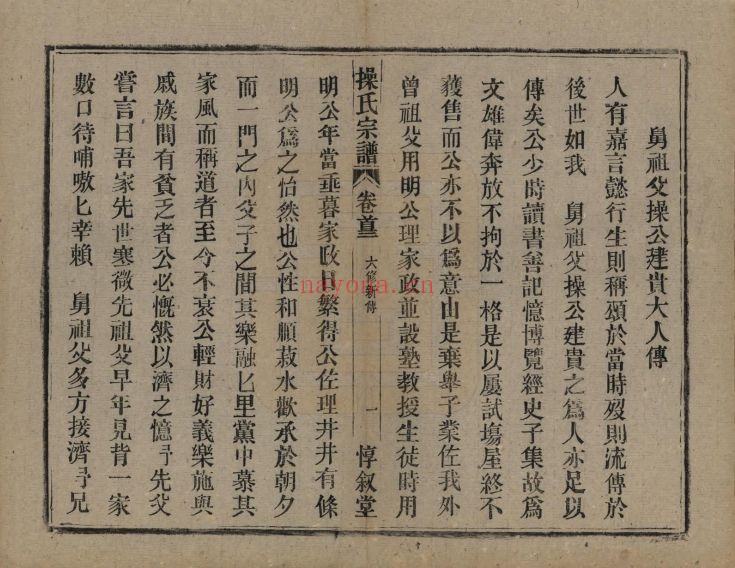 舅祖父操公建貴大人傳
人有嘉言懿行生則稱頌於當時歿則流傳於
後世如我 舅祖父操公建貴之爲人亦足以
傳矣公少時讀書善記憶博覽經史子集故爲
文雄偉奔放不拘於一格是以屢試塲屋終不
獲售而公亦不以爲意由是棄舉子業佐我外
曾祖父用明公理家政並設塾教授生徒時用
操氏宗譜 卷首 六修新傳 一 惇叙堂
明公年當垂暮家政日繁得公佐理井井有條
明公爲之怡然也公性和順菽水歡承於朝夕
而一門之內父子之間其樂融匕里黨中慕其
家風而稱道者至今不衰公輕財好義樂施與
戚族間有貧乏者公必慨然以濟之憶予先父
嘗言曰吾家先世寒微先祖父早年見背一家
數口待哺嗷匕幸賴 舅祖父多方接濟予兄
nayona.cn